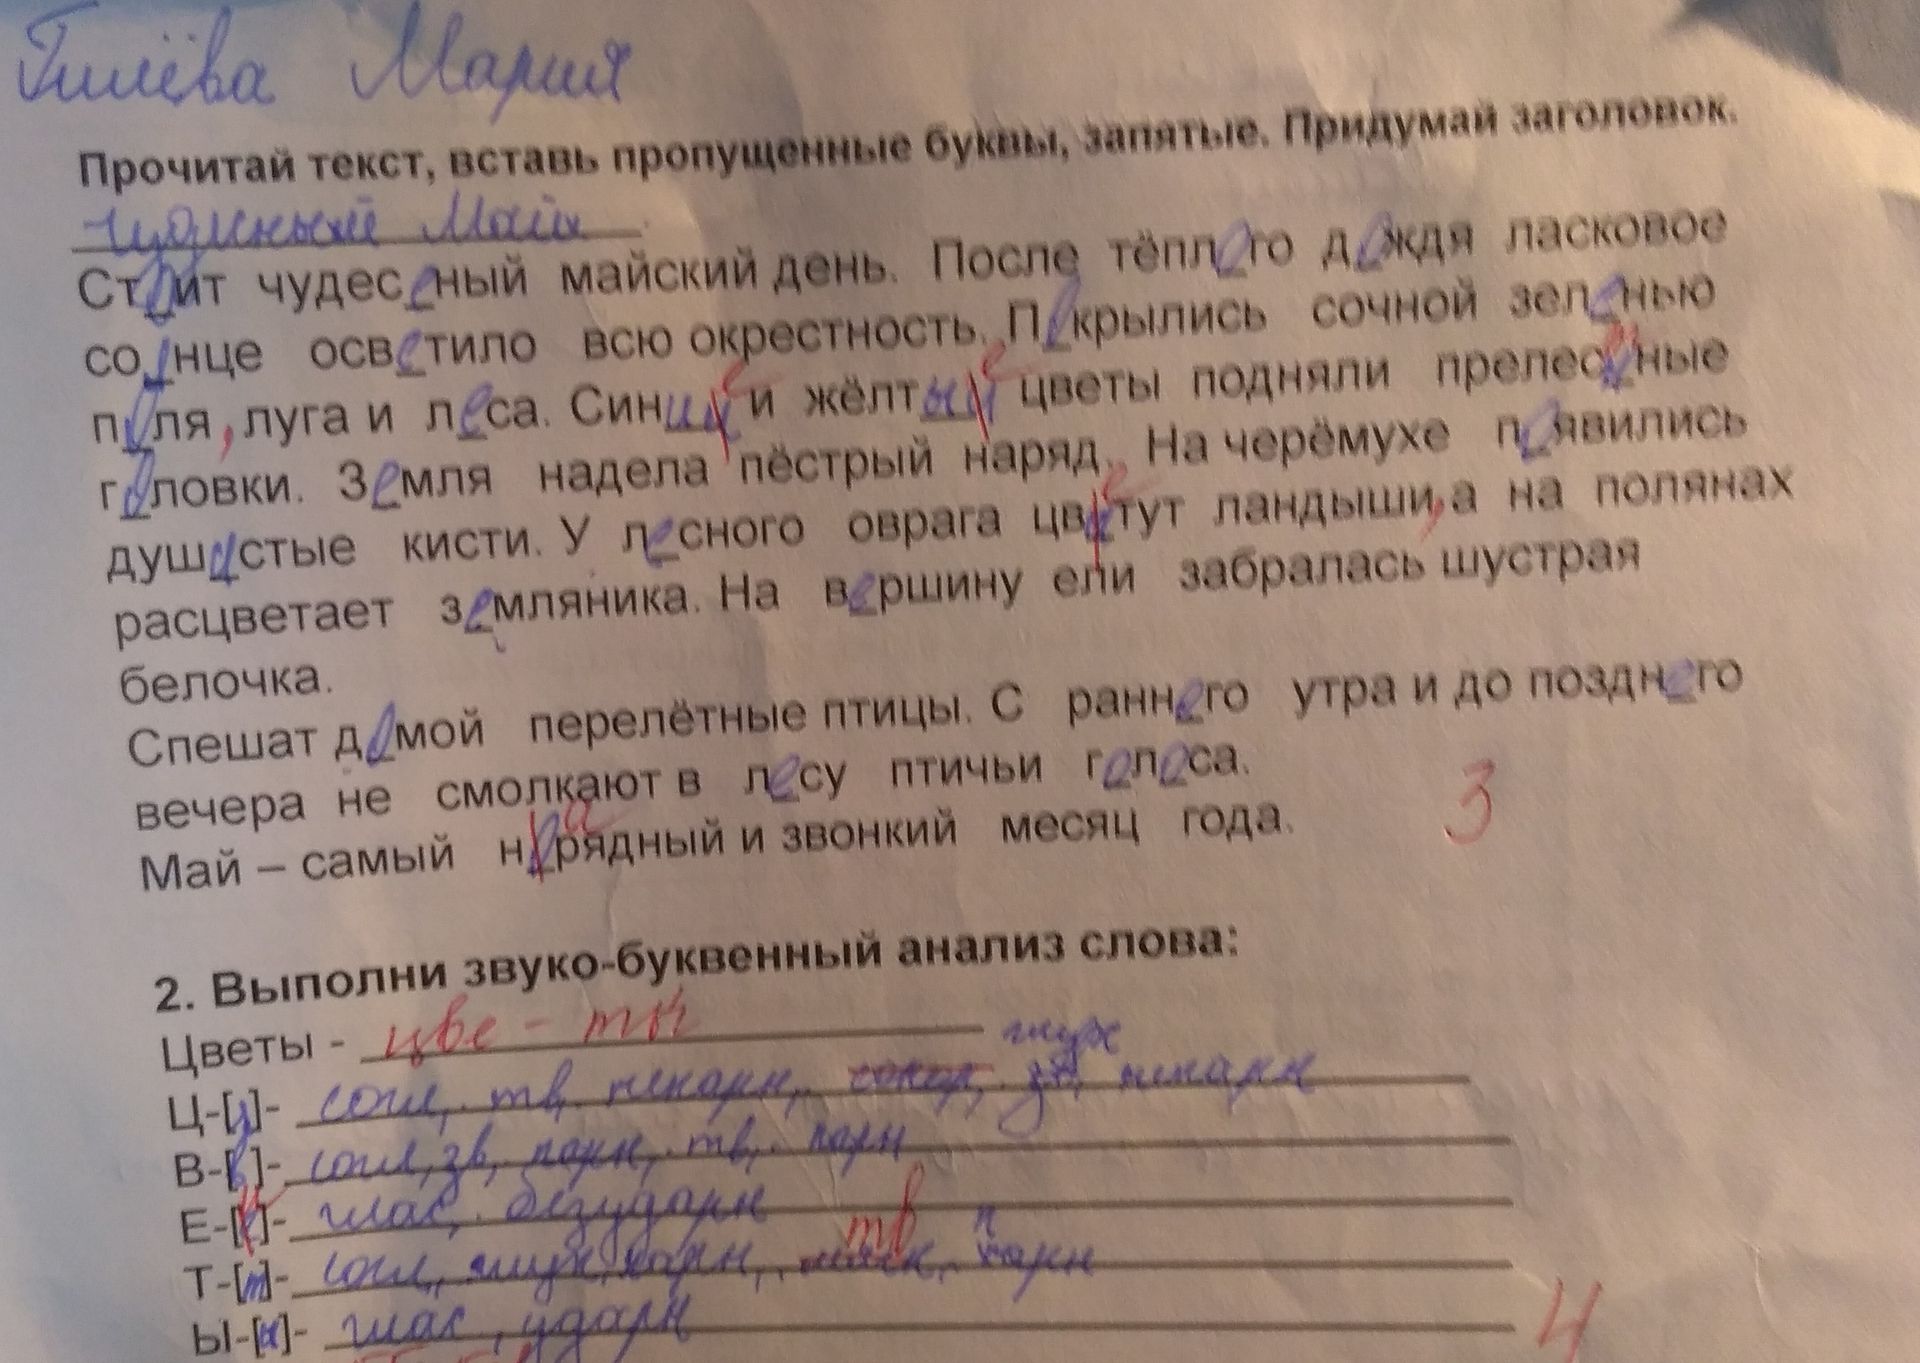 Гилёва Мария
Прочитай текст, вставь пропущенные буквы, запятые. Придумай заголовок.
Чудесный Май
Стоит чудесеный майский день. После тёплого дождя ласковое
солнце осветило всю окрестность. Покрылись сочной зеленью
поля, луга и леса. Синий е и жёлтый е цветы подняли прелесные
головки. Земля надела пёстрый наряд. На черёмухе появились
душистые кисти. У лесного оврага цвитут е ландыши, а на полянах
расцветает земляника. На вершину ели забралась шустрая
белочка.
Спешат домой перелётные птицы. С раннего утра и до позднего
вечера не смолкают в лесу птичьи голоса.
Май – самый норядный а и звонкий месяц года.
3
2. Выполни звуко-буквенный анализ слова:
Цветы - цве - ты
глух
Ц-[ц]- согл, тв, непарн, зв, непарн
В-[в]- согл, зв, парн, тв, парн
Е-[и]- глас, безударн
тв п
Т-[т]- согл, глух, парн, мягк, парн
Ы-[ы]- глас, ударн
4